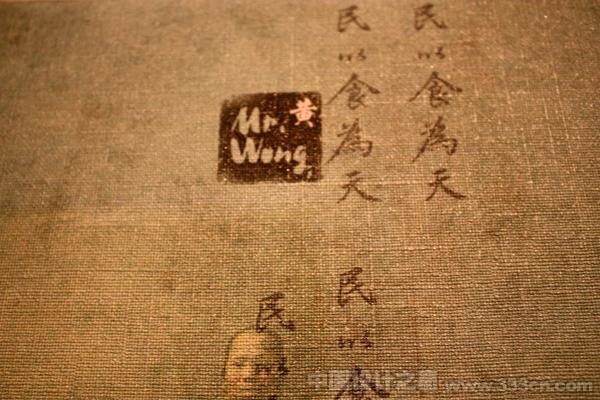 民以食為天
民以食為天
Mr. 黄
Wong
民以食
民以
中国设计之窗 www.333cn.com